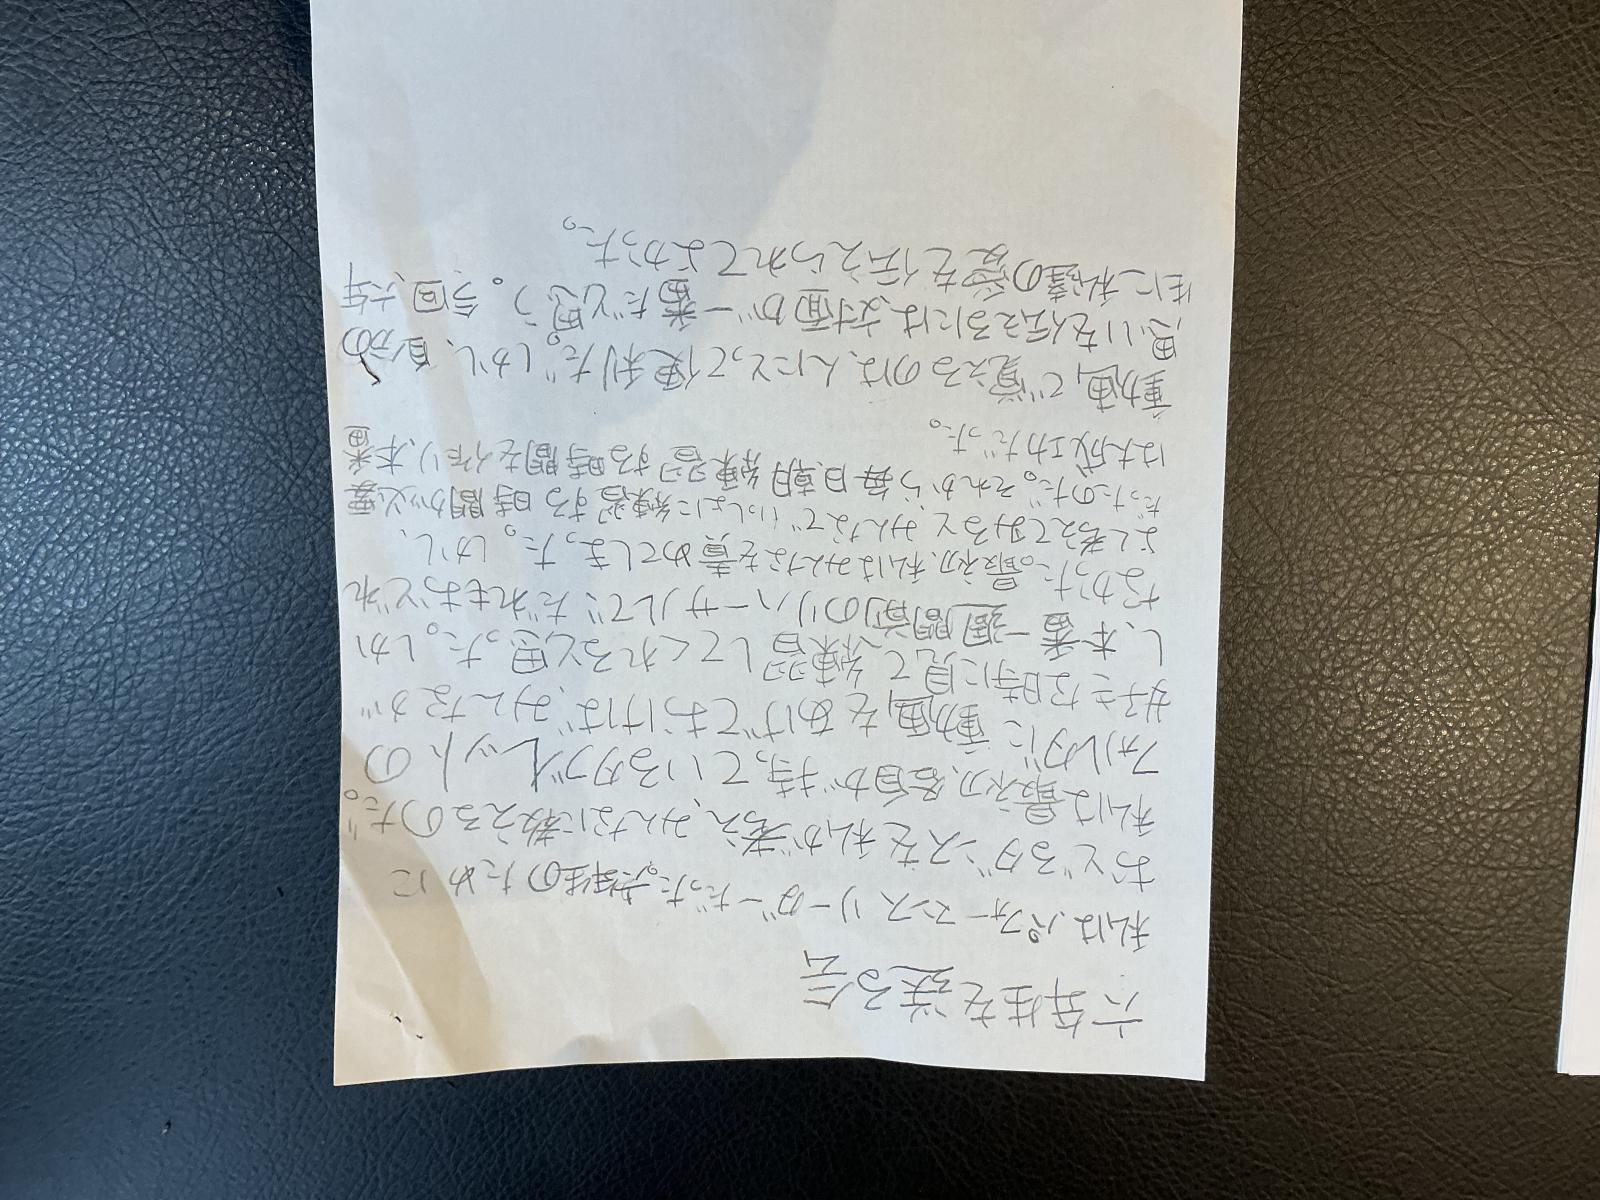 六年生を送る会
私はパフォーマンスリーダーだった。六年生のために
おどるダンスを私が考え、みんなに教えるのだ。
私は最初、各自が持っているタブレットの
フォルダに動画をあげておけば、みんなが
好きな時に見て、練習してくれると思った。しか
し、本番一週間前のリハーサルで、だれもおどれ
なかった。最初、私はみんなを責めてしまった。しかし、
よく考えてみるとみんなでいっしょに練習する時間が必要
だったのだ。それから毎日朝練習する時間を作り、本番
は大成功だった。
動画で覚えるのは、人にとって便利だ。しかし、自分の
思いを伝えるには、対面が一番だと思う。今回、六年
生に私達の愛を伝えられてよかった。